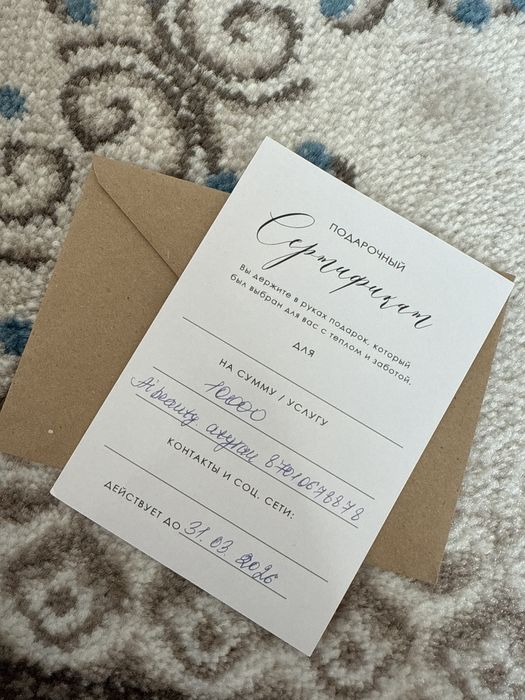 ПОДАРОЧНЫЙ
Сертификат
Вы держите в руках подарок, который
был выбран для вас с теплом и заботой.
ДЛЯ
НА СУММУ / УСЛУГУ
10000
87010678878
КОНТАКТЫ И СОЦ. СЕТИ:
ДЕЙСТВУЕТ ДО 31.03.2026